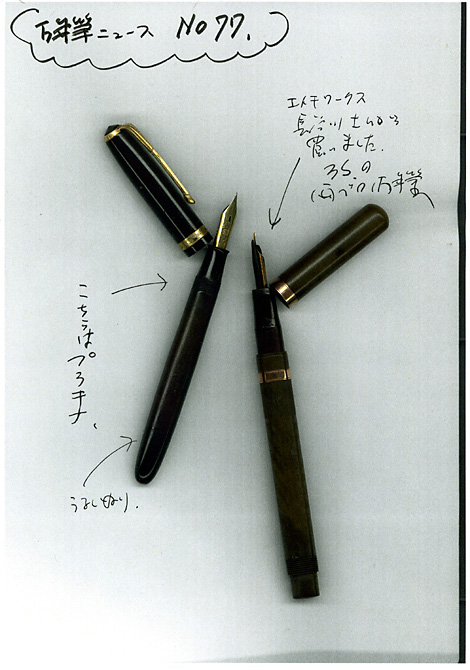 万年筆ニュース No 77.
エイチワークス
長谷川さんから
買いました。
万年筆
こちらはプラチナ、
うるしぬり.